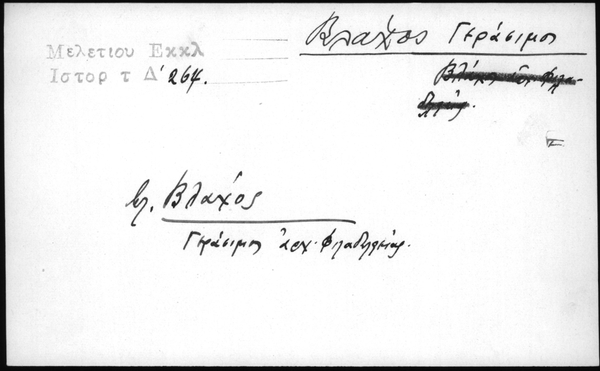 Βλαχος Γεράσιμος
Μελετιου Εκκλ
Ιστορ τ Δ' 264.
βλ. Βλαχος
Γεράσιμος ἀρχ. Φιλαδελφείας.